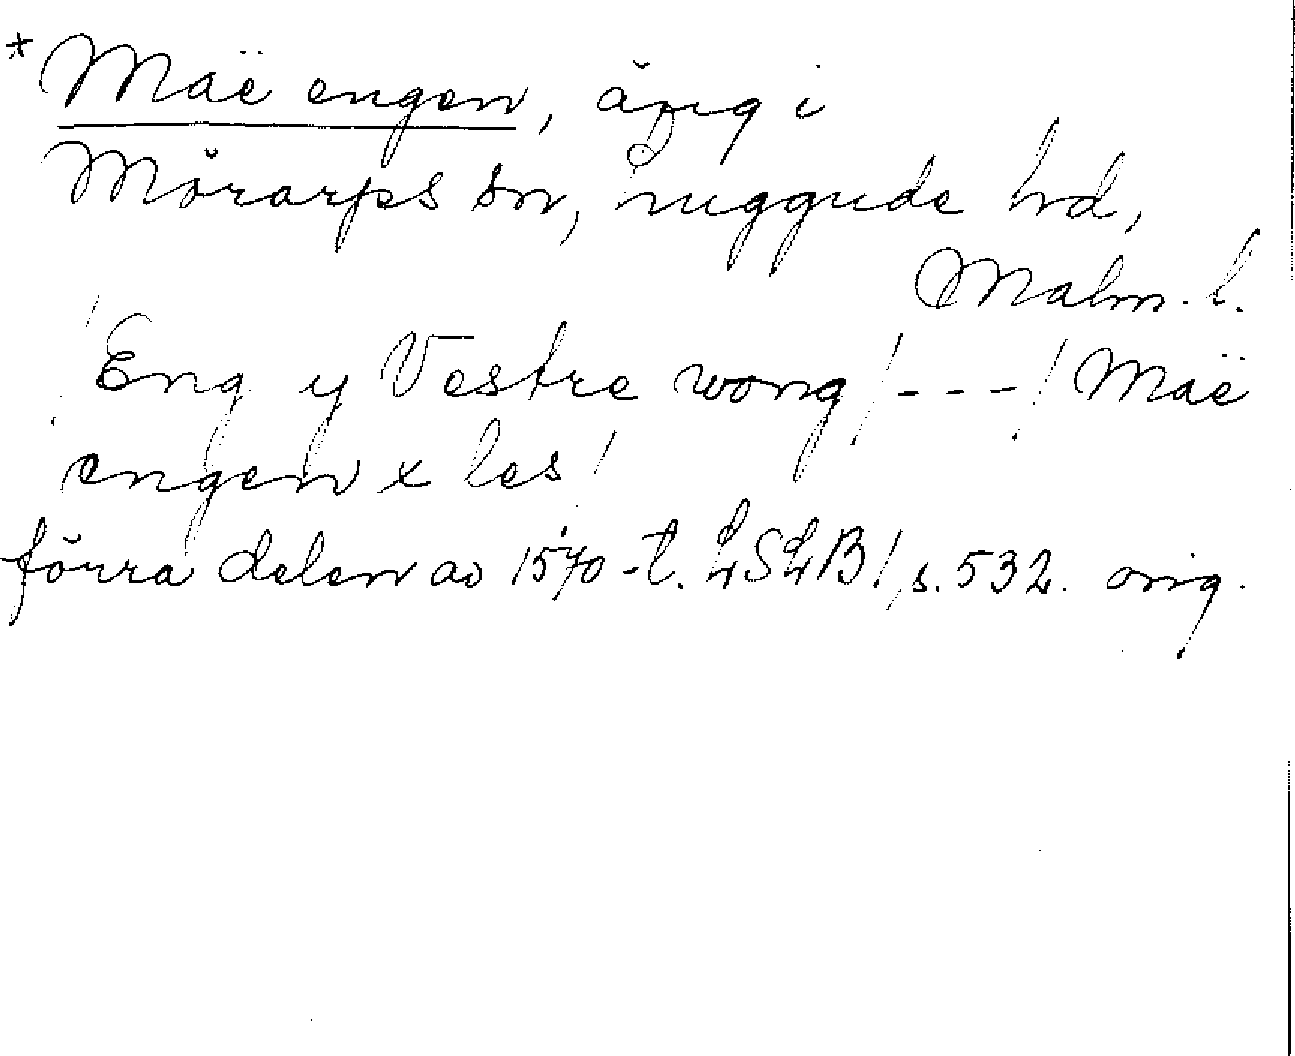 * Maë engen, äng i
Mörarps sn, Luggude hd,
Malm. l.
'Eng y Vestre wong /---/ Maë
engen x les'
förra delen av 1570-t. LSLB 1, s. 532. orig.